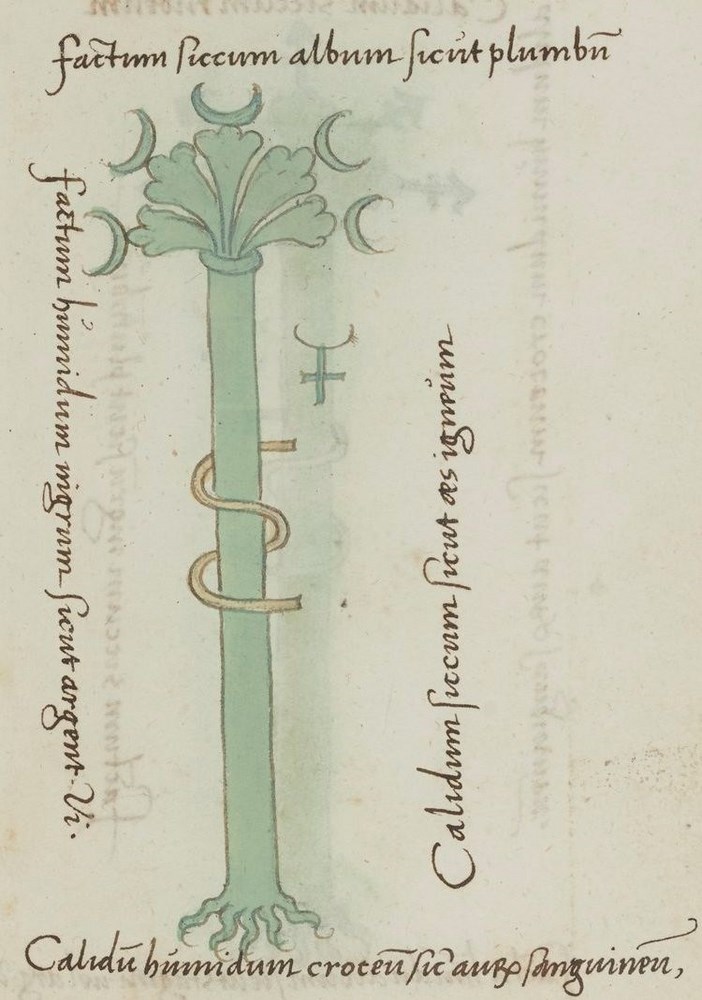 factum siccum album sicut plumbū
factum húmidum nigrum sicut argent Vi.
Calidum siccum sicut æs igneum
Calidū húmidum croceū sic̄ auꝝ sanguineū,